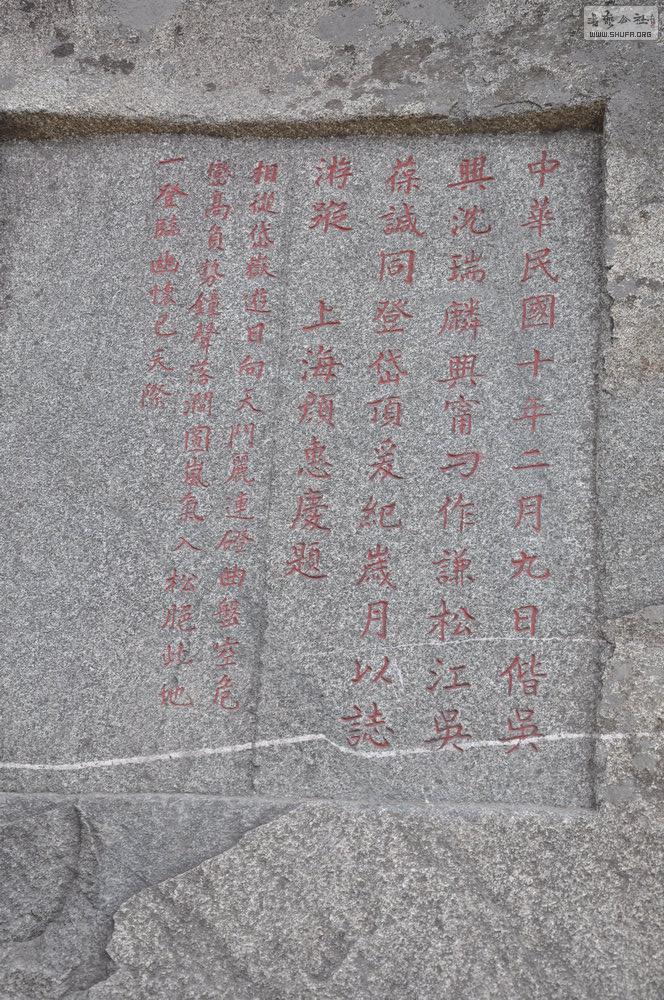 中華民國十年二月九日偕吳
興沈瑞麟興甯刁作謙松江吳
葆誠同登岱頂爰紀歲月以誌
游蹤 上海顏惠慶題
相從岱嶽遊日向天門麗連磴曲盤空危
巒高負勢鐘聲落澗圓嵐氣入松脆此地
一登臨幽懷已天際
WWW.SHUFA.ORG